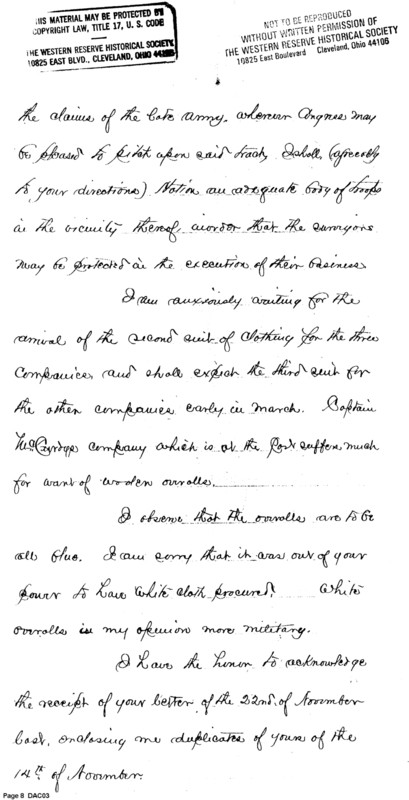 THIS MATERIAL MAY BE PROTECTED BY
COPYRIGHT LAW, TITLE 17, U. S. CODE
THE WESTERN RESERVE HISTORICAL SOCIETY
10825 EAST BLVD., CLEVELAND, OHIO 44106
NOT TO BE REPRODUCED
WITHOUT WRITTEN PERMISSION OF
THE WESTERN RESERVE HISTORICAL SOCIETY
10825 East Boulevard Cleveland, Ohio 44106
the claims of the late army, wherein Congress may
be pleased to pitch upon said tract, I shall (agreeably
to your directions) Station an adequate body of troops
in the vicinity thereof, in order that the surveyors
may be protected in the execution of their business
I am anxiously waiting for the
arrival of the second suit of clothing for the three
Companies, and shall expect the third suit for
the other companies early in march. Captain
company which is at the Post suffers much
for want of woolen overalls.
I observe that the overalls are to be
all blue. I am sorry that it was out of your
power to have white cloth procured. White
overalls is my opinion more military.
I have the honor to acknowledge
the receipt of your letter of the 22nd. of November
last, enclosing me duplicates of yours of the
14th of November.
Page 8 DAC03